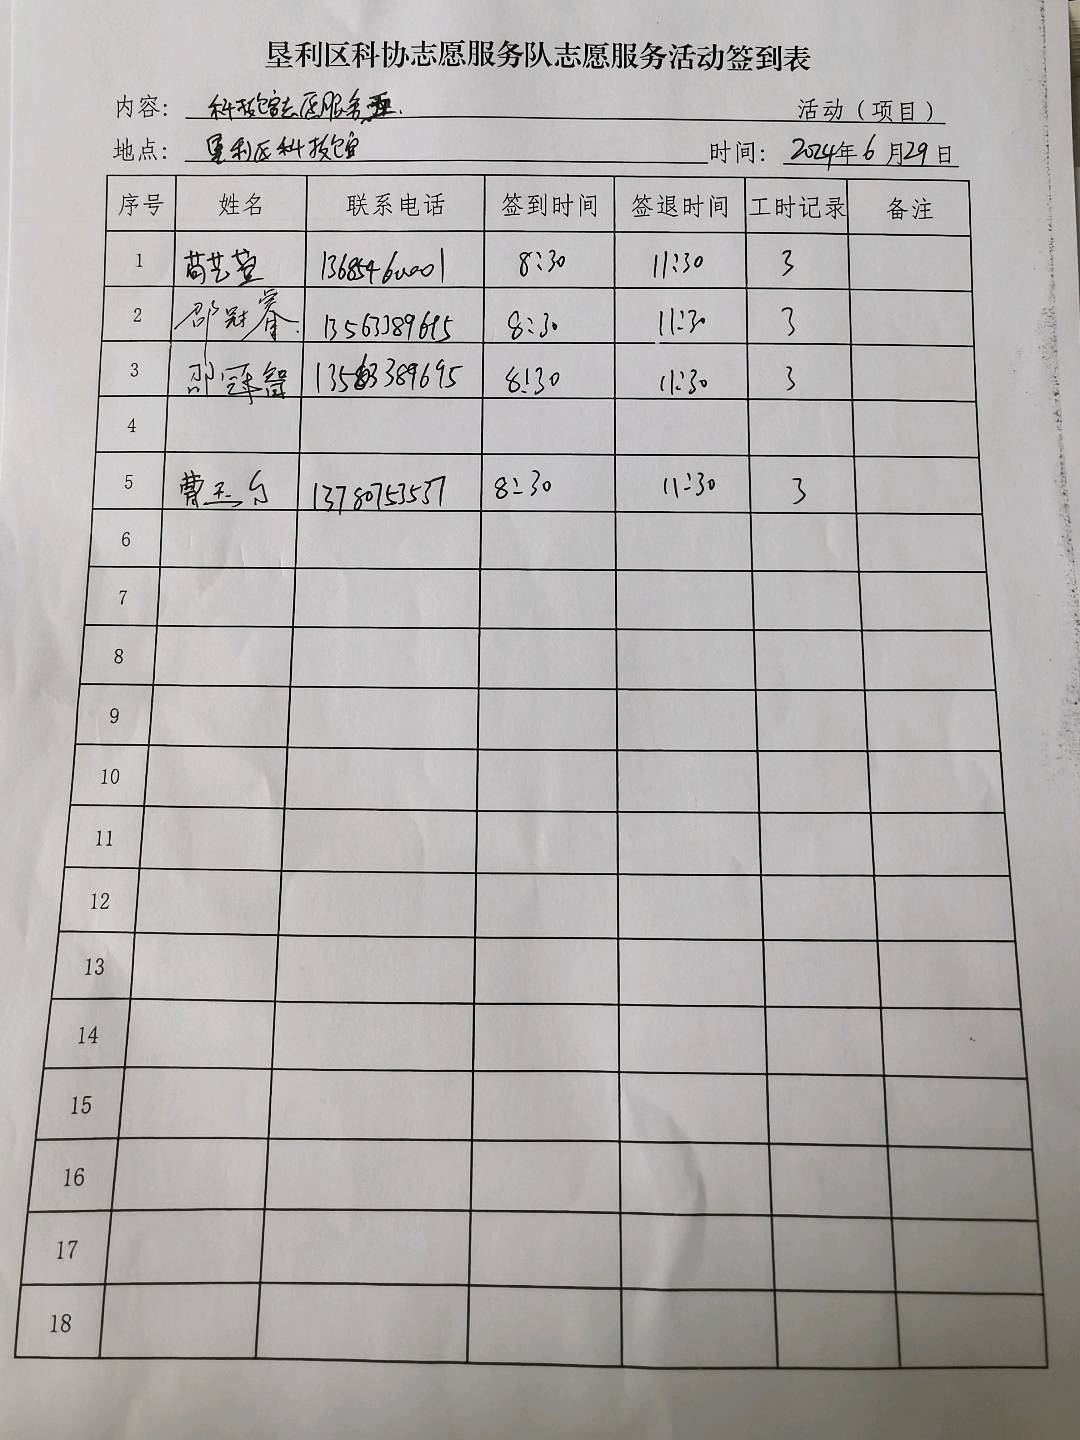 垦利区科协志愿服务队志愿服务活动签到表
内容: 科技馆志愿服务 活动（项目）
地点: 垦利区科技馆 时间: 2024年6月29日
序号 姓名 联系电话 签到时间 签退时间 工时记录 备注
1 8:30 11:30 3
2 邵冠睿 13563389695 8:30 11:30 3
3 邵冠智 13563389695 8:30 11:30 3
4
5 曹玉 13780753537 8:30 11:30 3
6
7
8
9
10
11
12
13
14
15
16
17
18